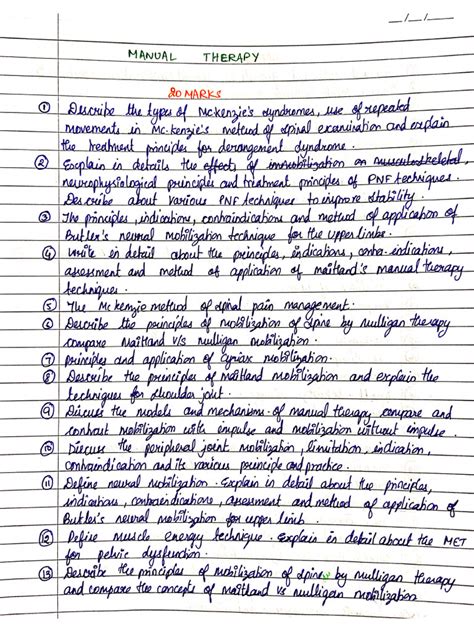 __/__/__
MANUAL THERAPY
20 MARKS
① Describe the types of McKenzie's syndromes, use of repeated
movements in Mc.kenzie's method of spinal examination and explain
the treatment principles for derangement syndrome.
② Explain in details the effects of immobilization on musculoskeletal,
neurophysiological principles and treatment principles of PNF techniques.
Describe about various PNF techniques to improve stability.
③ The principles, indications, contraindications and method of application of
Butler's neural mobilization technique for the upper limbs.
④ Write in detail about the principles, indications, contra-indications,
assessment and method of application of maitland's manual therapy
techniques.
⑤ The Mc kenzie method of spinal pain management.
⑥ Describe the principles of mobilization of spine by mulligan therapy
compare Maitland v/s mulligan mobilization.
⑦ principles and application of cyriax mobilization.
⑧ Describe the principles of maitland mobilization and explain the
techniques for shoulder joint.
⑨ Discuss the models and mechanisms of manual therapy compare and
contrast mobilization with impulse and mobilization without impulse.
⑩ Discuss the peripheral joint mobilization, limitation, indication,
contraindication and its various principle and practice.
⑪ Define neural mobilization. Explain in detail about the principles,
indications, contraindications, assessment and method of application of
Butler's neural mobilization for upper limb.
⑫ Define muscle energy technique. Explain in detail about the MET
for pelvic dysfunction.
⑬ Describe the principles of mobilization of spine by mulligan therapy
and compare the concepts of maitland vs mulligan mobilization